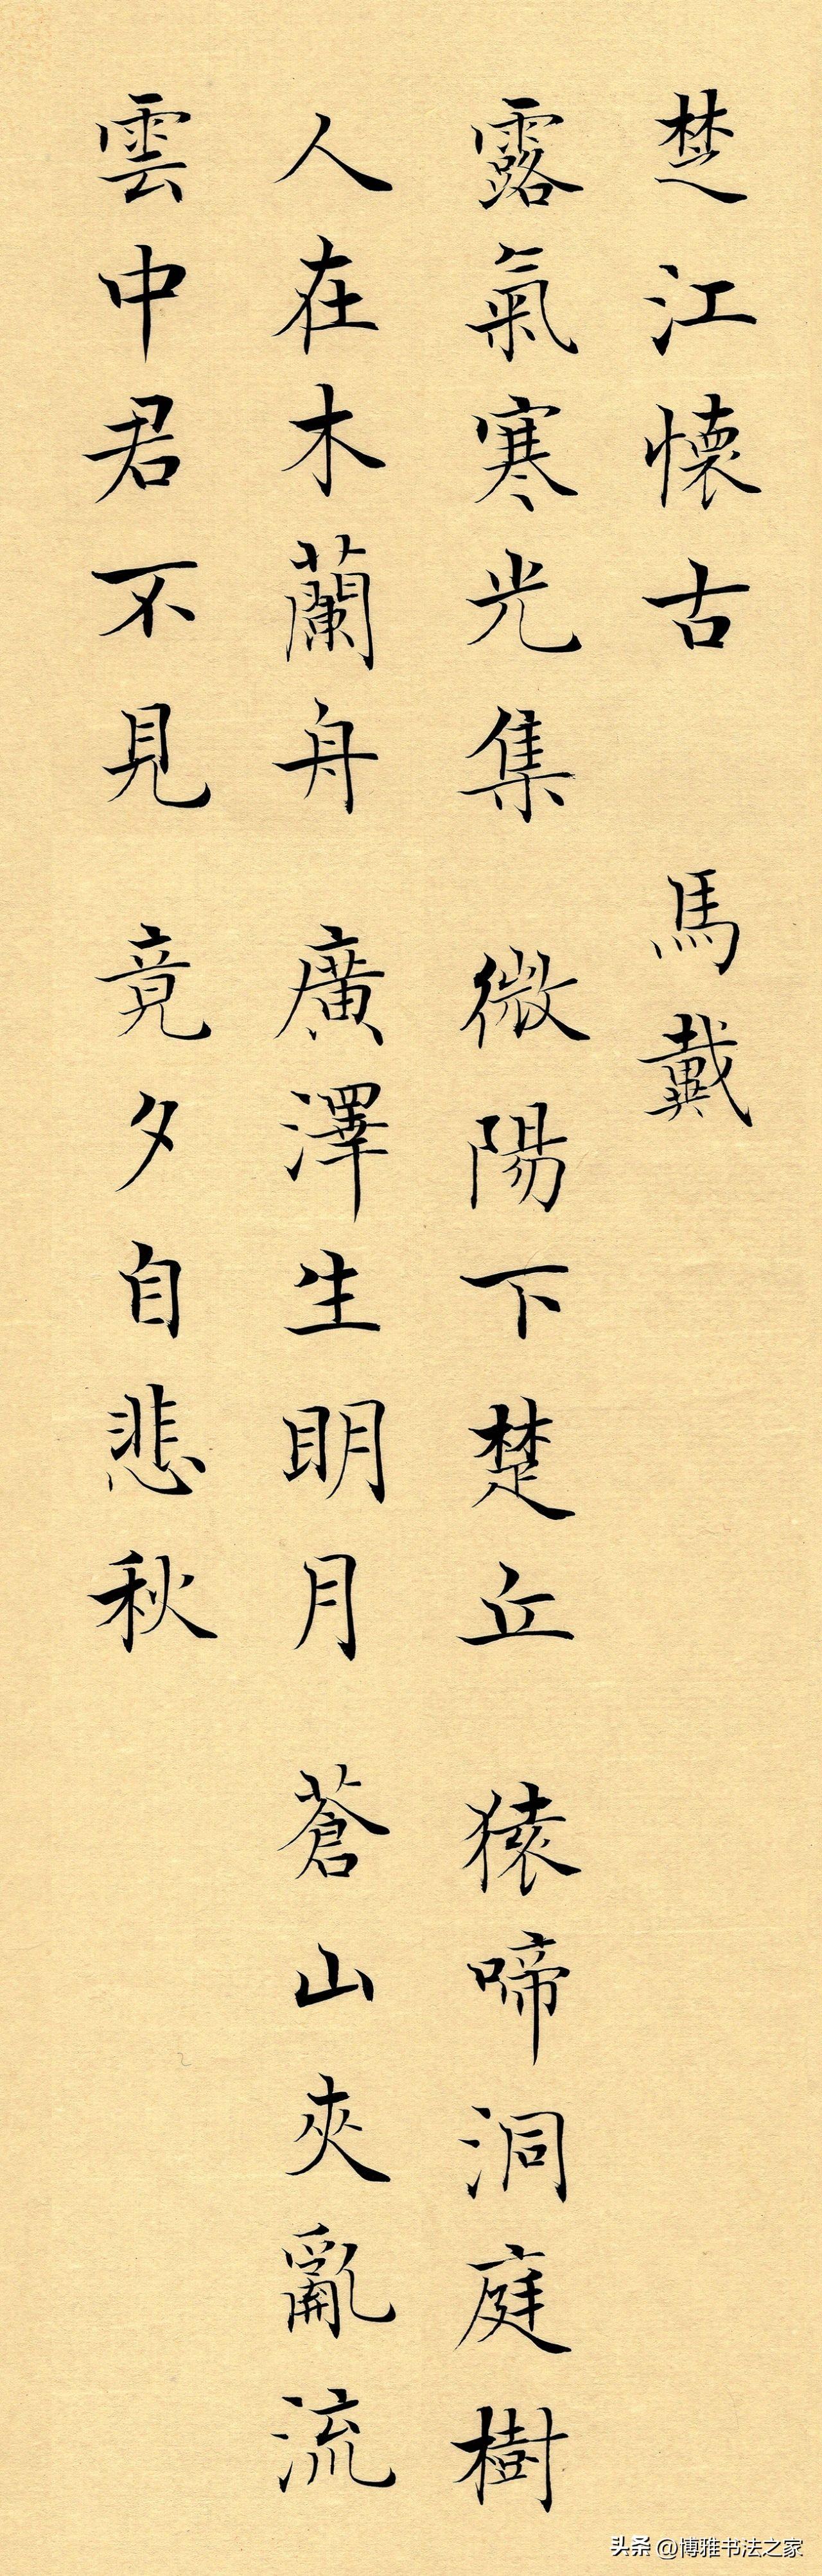 楚江懷古 馬戴
露氣寒光集 微陽下楚丘 猿啼洞庭樹
人在木蘭舟 廣澤生明月 蒼山夾亂流
雲中君不見 竟夕自悲秋
头条 @博雅书法之家